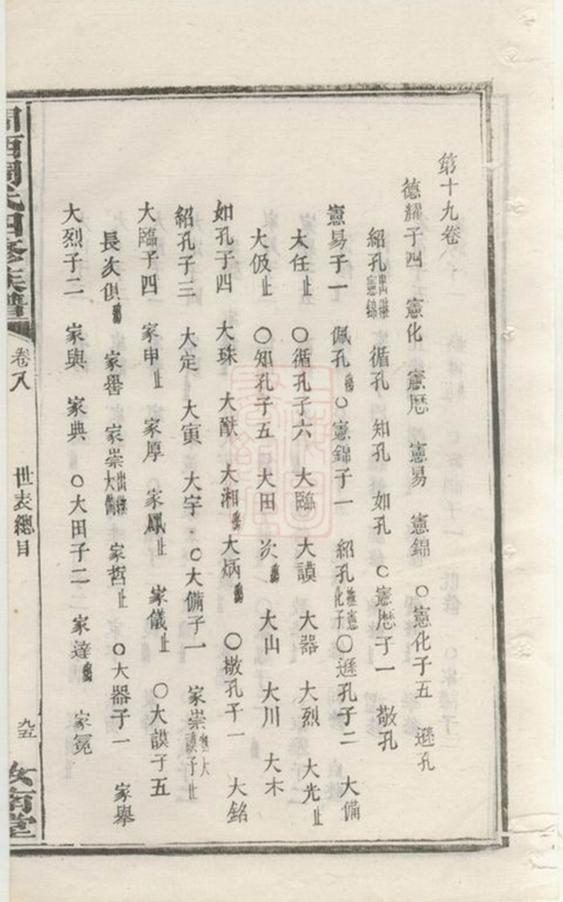 第十九卷
德耀子四 憲化 憲歷 憲易 憲錦 ○憲化子五 遜孔
紹孔出繼憲錦 循孔 知孔 如孔 ○憲歷子一 敬孔
憲易子一 佩孔 ○憲錦子一 紹孔繼憲化子 ○遜孔子二 大備
大任止 ○循孔子六 大臨 大謨 大器 大烈 大光止
大伋止 ○知孔子五 大田 次 大山 大川 大木
如孔子四 大珠 大猷 大湘 大炳 ○敬孔子一 大銘
紹孔子三 大定 大寅 大宇 ○大備子一 家崇繼大謨子止
大臨子四 家申止 家厚 家鳳止 家儀止 ○大謨子五
長次俱 家譽 家崇出繼大備 家哲止 ○大器子一 家舉
大烈子二 家與 家典 ○大田子二 家達 家冕
周氏四修族譜
卷八
世表總目
九五
汝南堂